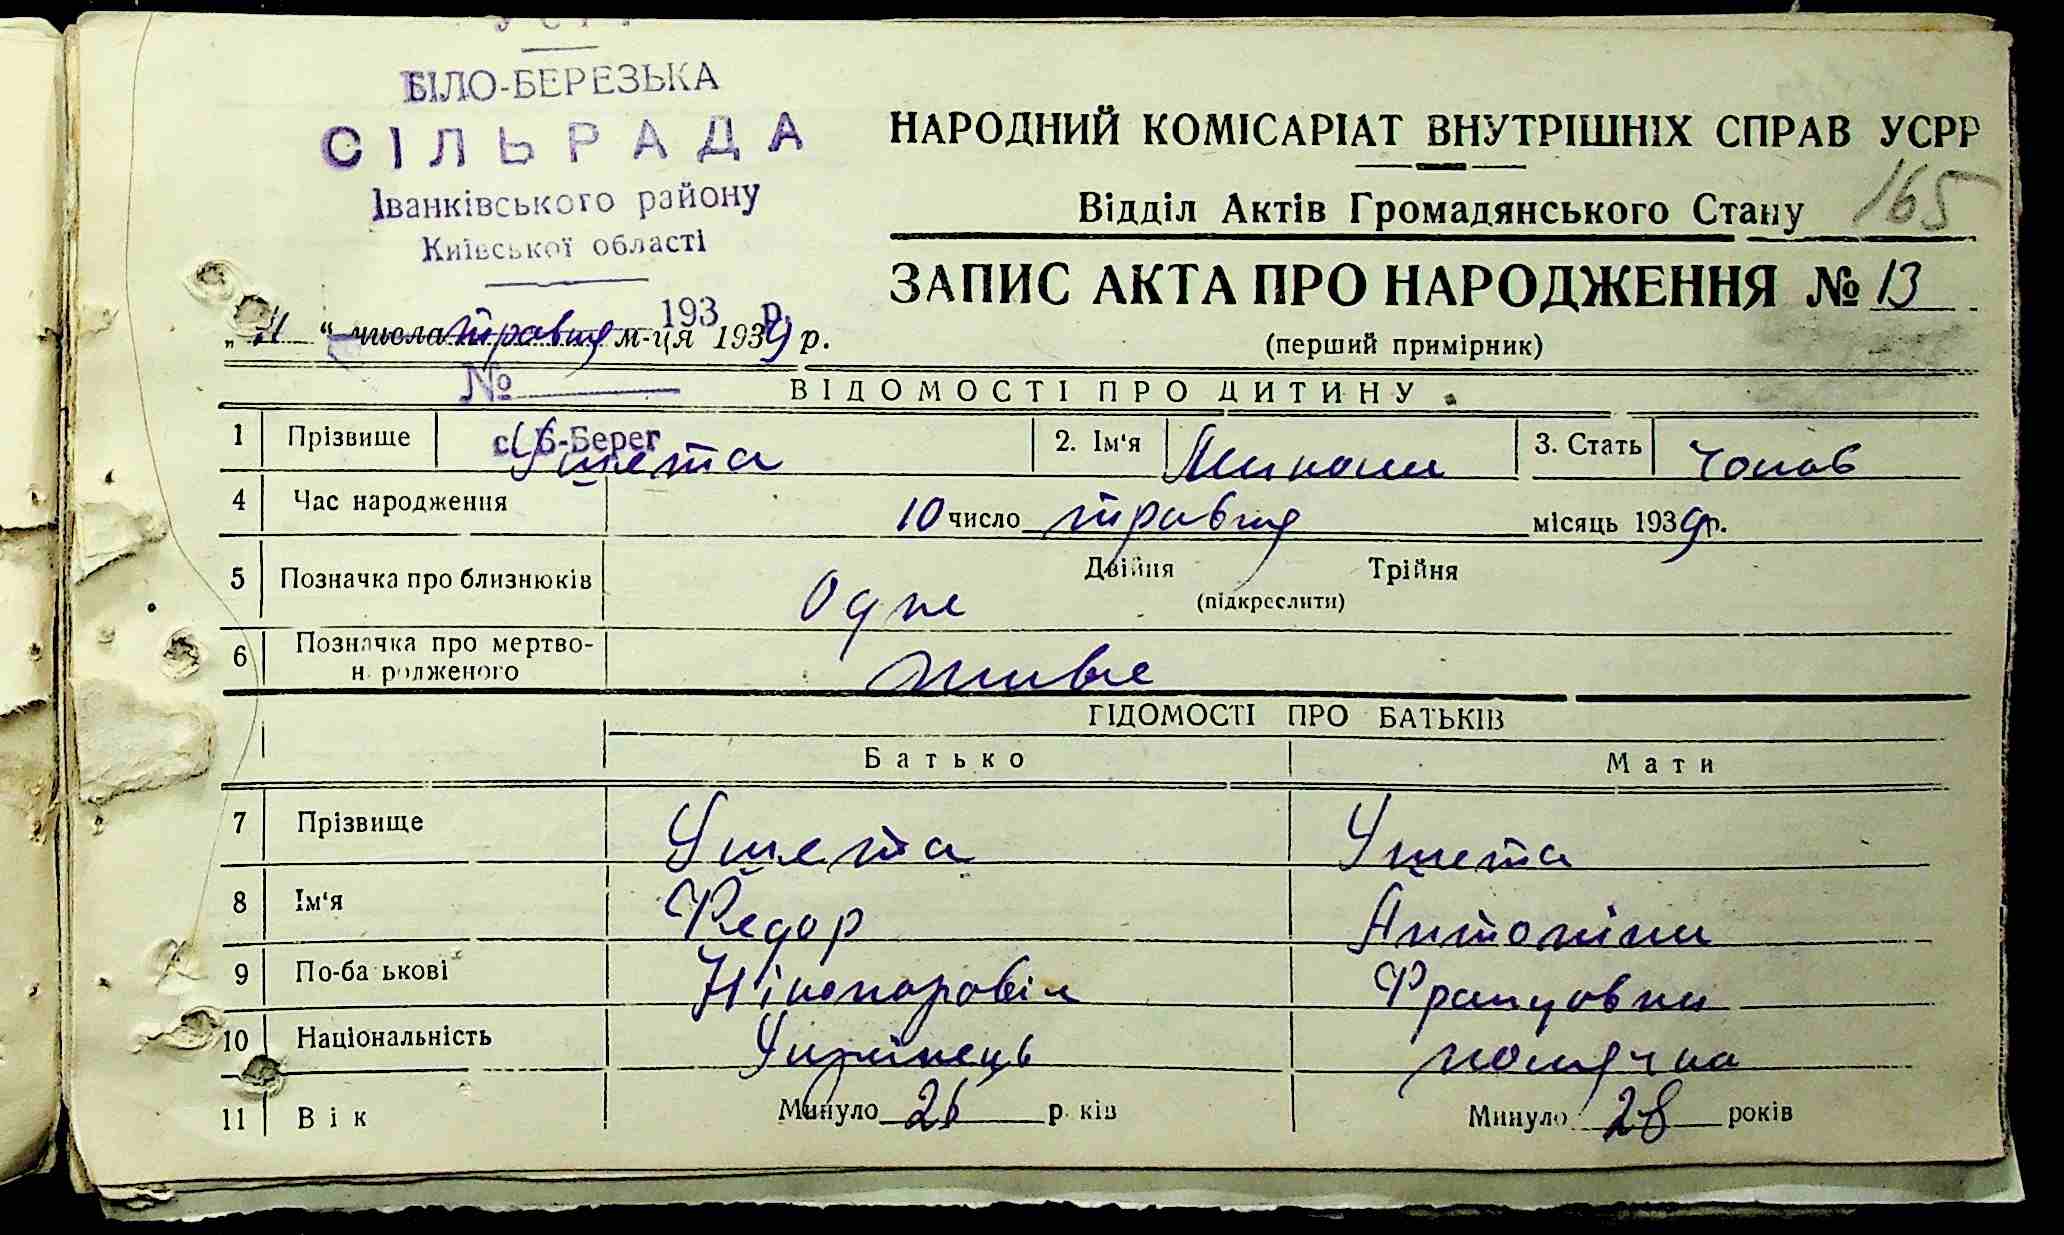 БІЛО-БЕРЕЗЬКА
СІЛЬРАДА
Іванківського району
Київської області
193 р.
№
с. Б-Берег
НАРОДНИЙ КОМІСАРІАТ ВНУТРІШНІХ СПРАВ УСРР
Відділ Актів Громадянського Стану 165
ЗАПИС АКТА ПРО НАРОДЖЕННЯ № 13
„11“ числа травня м-ця 1939 р.
(перший примірник)
ВІДОМОСТІ ПРО ДИТИНУ
1 Прізвище Ушета 2. Ім'я Микола 3. Стать Чолов
4 Час народження 10 число травня місяць 1939 р.
5 Позначка про близнюків Одне Двійня Трійня
(підкреслити)
6 Позначка про мертво-
н родженого живе
ВІДОМОСТІ ПРО БАТЬКІВ
Батько Мати
7 Прізвище Ушета Ушета
8 Ім'я Федор Антоніна
9 По-ба ькові Францовна
10 Національність Українець полячка
11 Вік Минуло 26 р ків Минуло 28 років